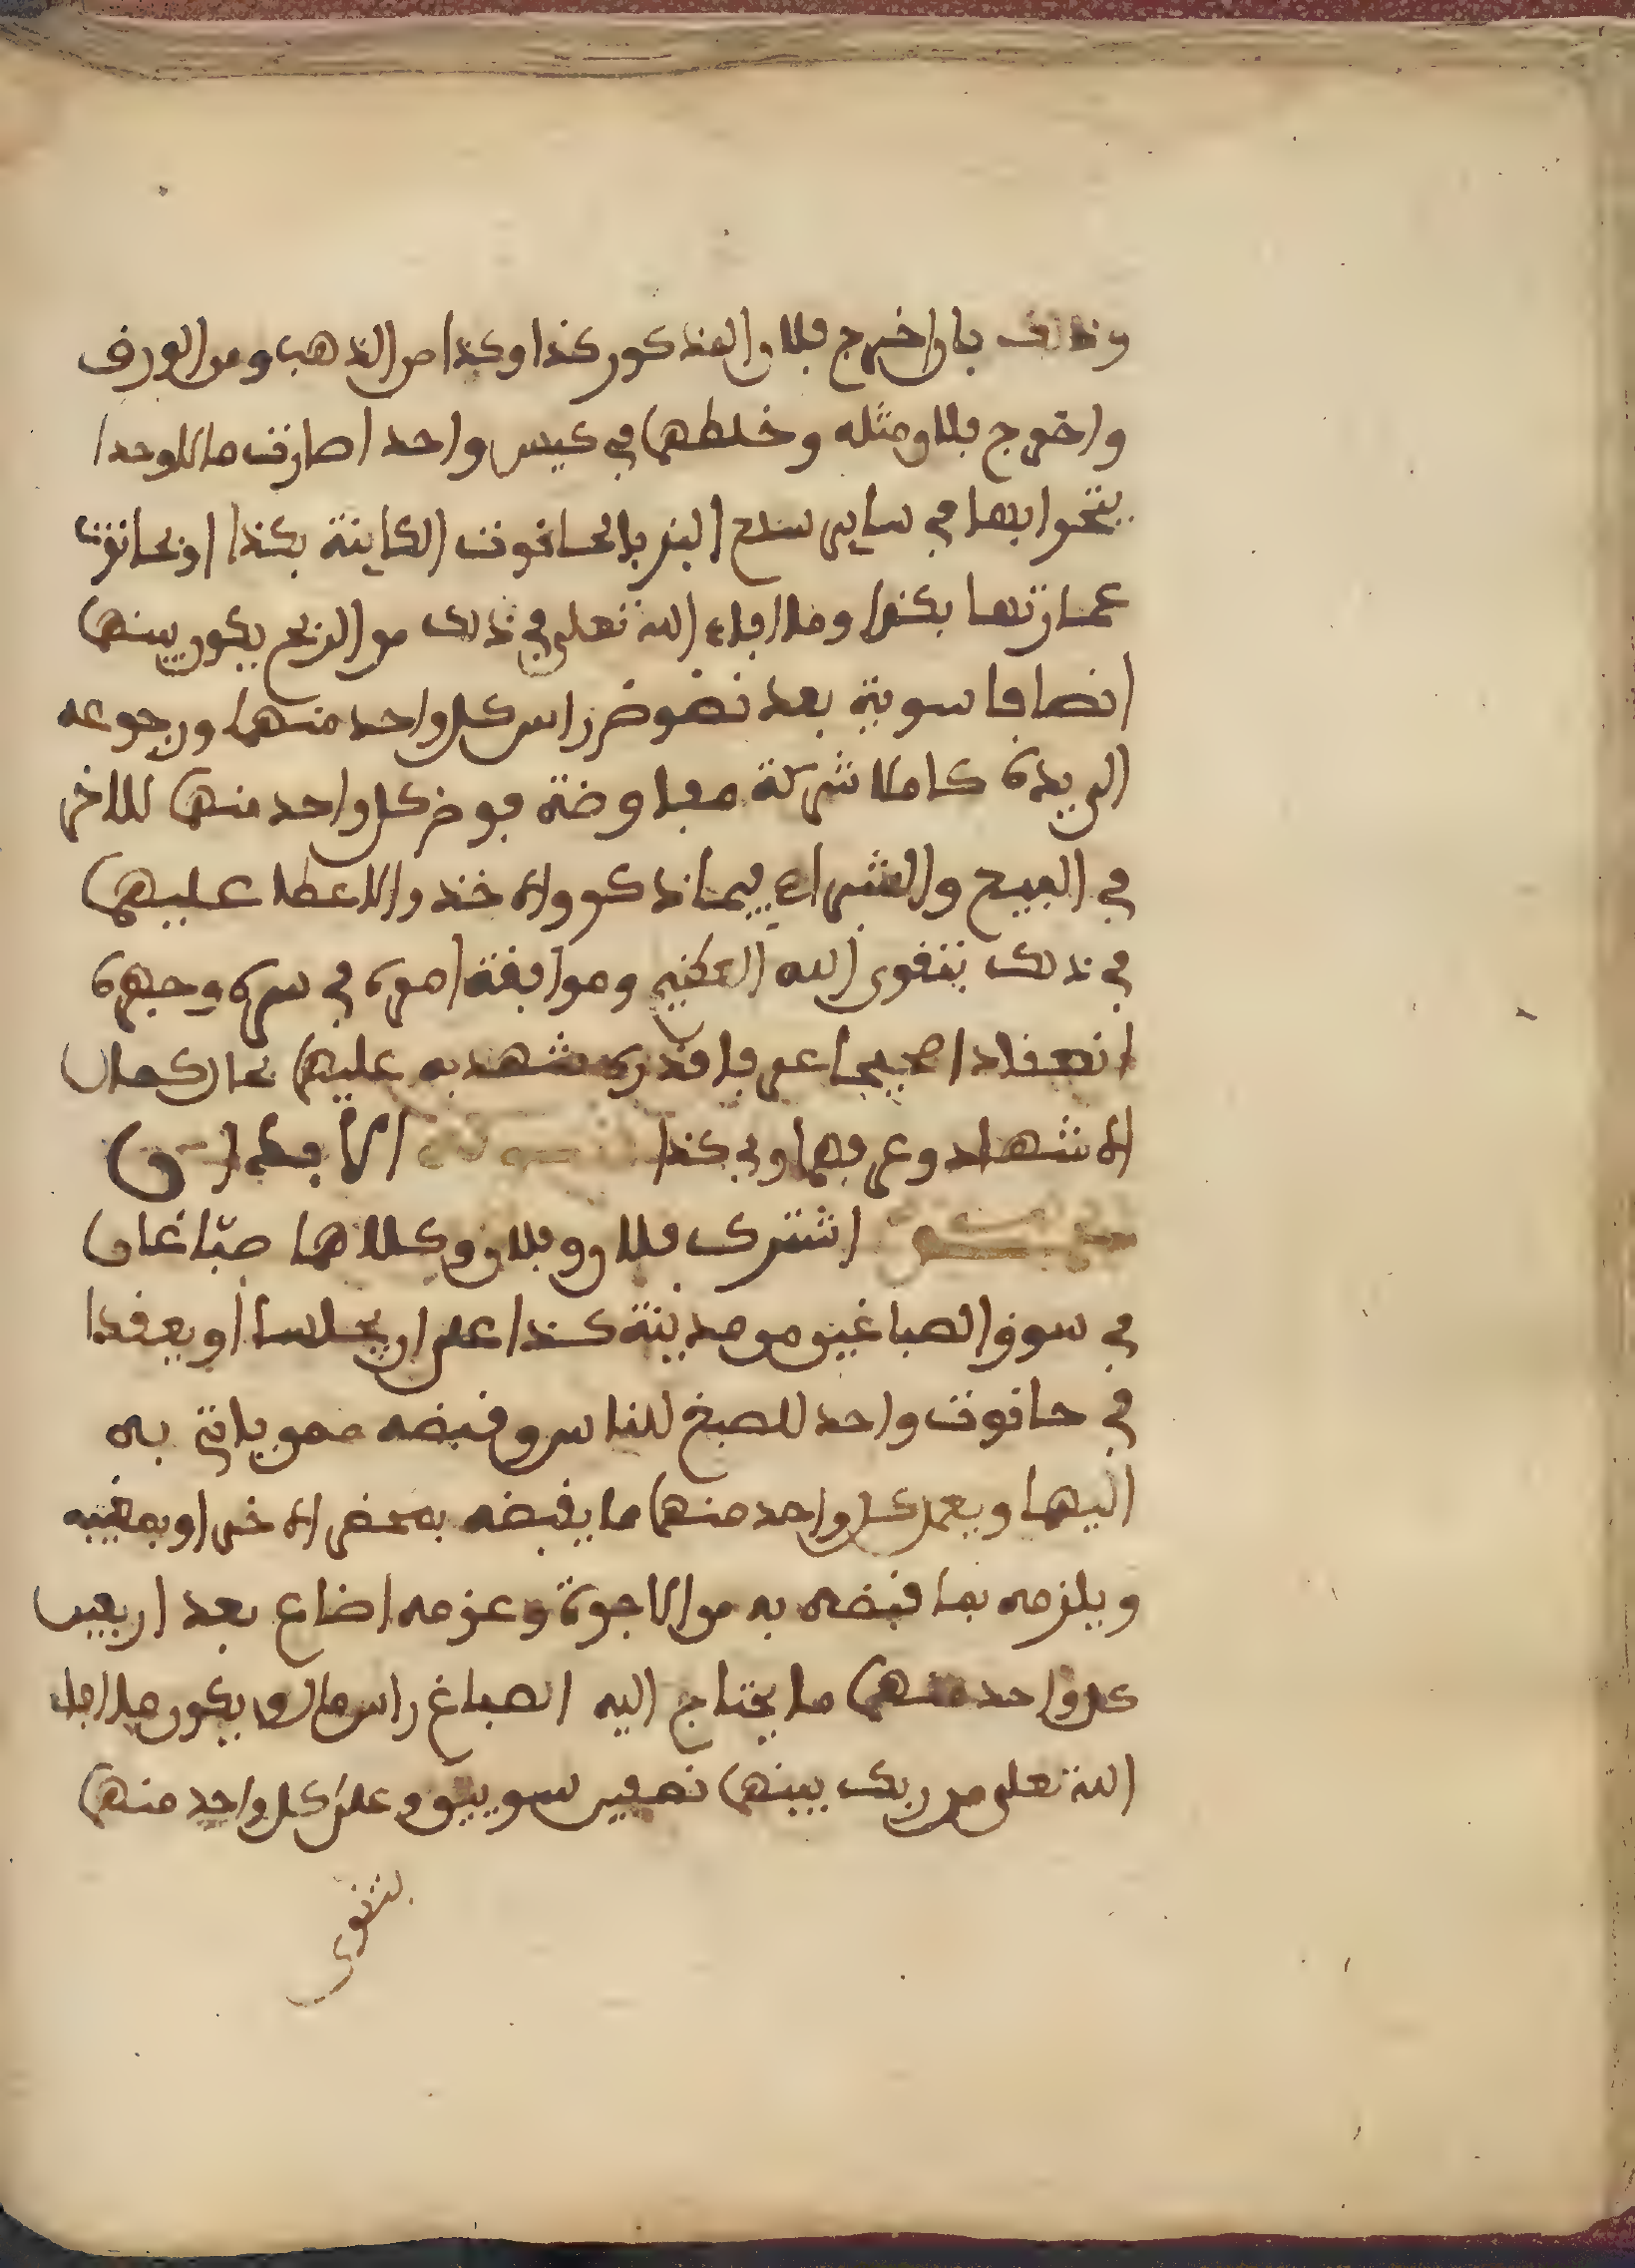 وذلك بان اخرج فلان المذكور كذا وكذا من الذهب ومن الورق
واخرج فلان مثله وخلطهما في كيس واحد اصارت مالا واحدا
يتجرا بها في ساير سلع البز بالحانوت الكاينة بكذا او بحانوت
عمارتها بكذا وما افاء الله تعلى في ذلك من الربح يكون بينهما
انصافا سوية بعد نضوض راس كل واحد منهما ورجوعه
الى يده كاملا شركة مفاوضة فوض كل واحد منهما للاخر
في البيع والشراء فيما ذكر والاخذ والاعطا عليهما
في ذلك بتقوى الله العظيم وموافقة امره في سره وجهره
انعقادا صحيحا عرفا قدره شهد به عليهما بحال كمال
الاشهاد وعرفهما وفي كذا
اشترك فلان وفلان وكلاهما صباغان
في سوق الصباغين من مدينة كذا على ان يجلسا او يعقدا
في حانوت واحد للصبغ للناس وقبضه ممن ياتي به
اليهما ويعمل كل واحد منهما ما يقبضه بمحضر الاخر او بمغيبه
ويلزمه بما قبضه به من الاجرة وغرمه اضاع بعد اربعين
كل واحد منهما ما يحتاج اليه الصباغ راس مال ويكون ما افا
الله تعلى من ربك بينهما نصفين سويين وعلى كل واحد منهما
بتقوى